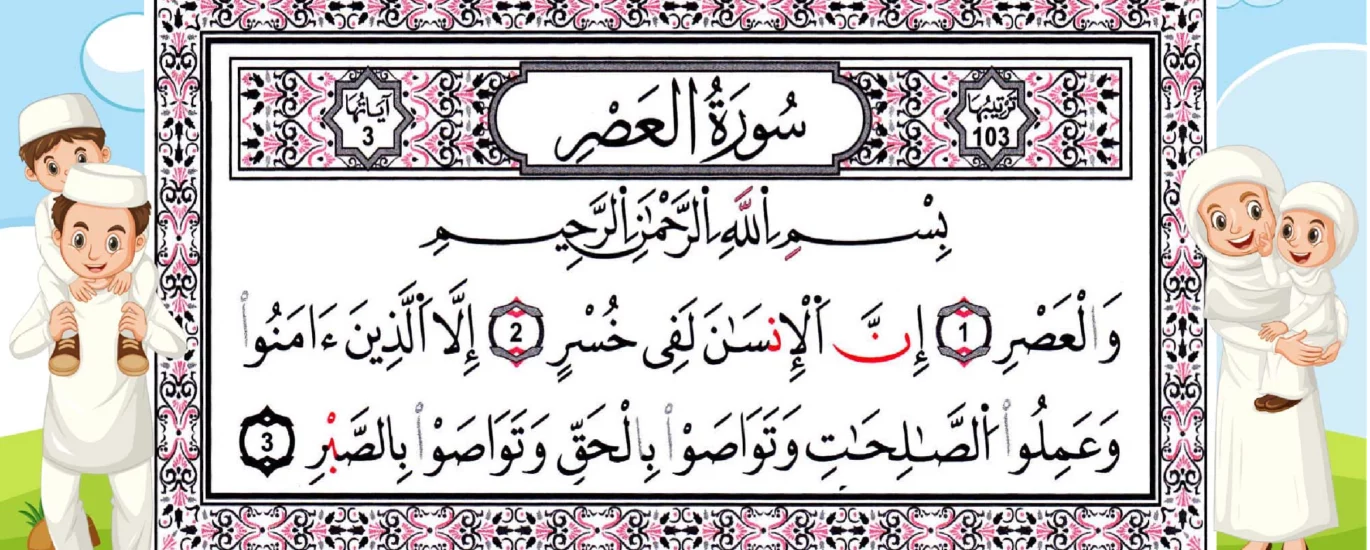 ترتيبها 103 سُورَةُ الْعَصْرِ آيَاتُهَا 3
بِسْمِ اِ۬للَّهِ اِ۬لرَّحْمَٰنِ اِ۬لرَّحِيمِ
وَالْعَصْرِ 1 إِنَّ اَ۬لْإِنسَٰنَ لَفِى خُسْرٍ 2 إِلَّا اَ۬لَّذِينَ ءَامَنُواْ
وَعَمِلُواْ اُ۬لصَّٰلِحَٰتِ وَتَوَاصَوْاْ بِالْحَقِّ وَتَوَاصَوْاْ بِالصَّبْرِ 3